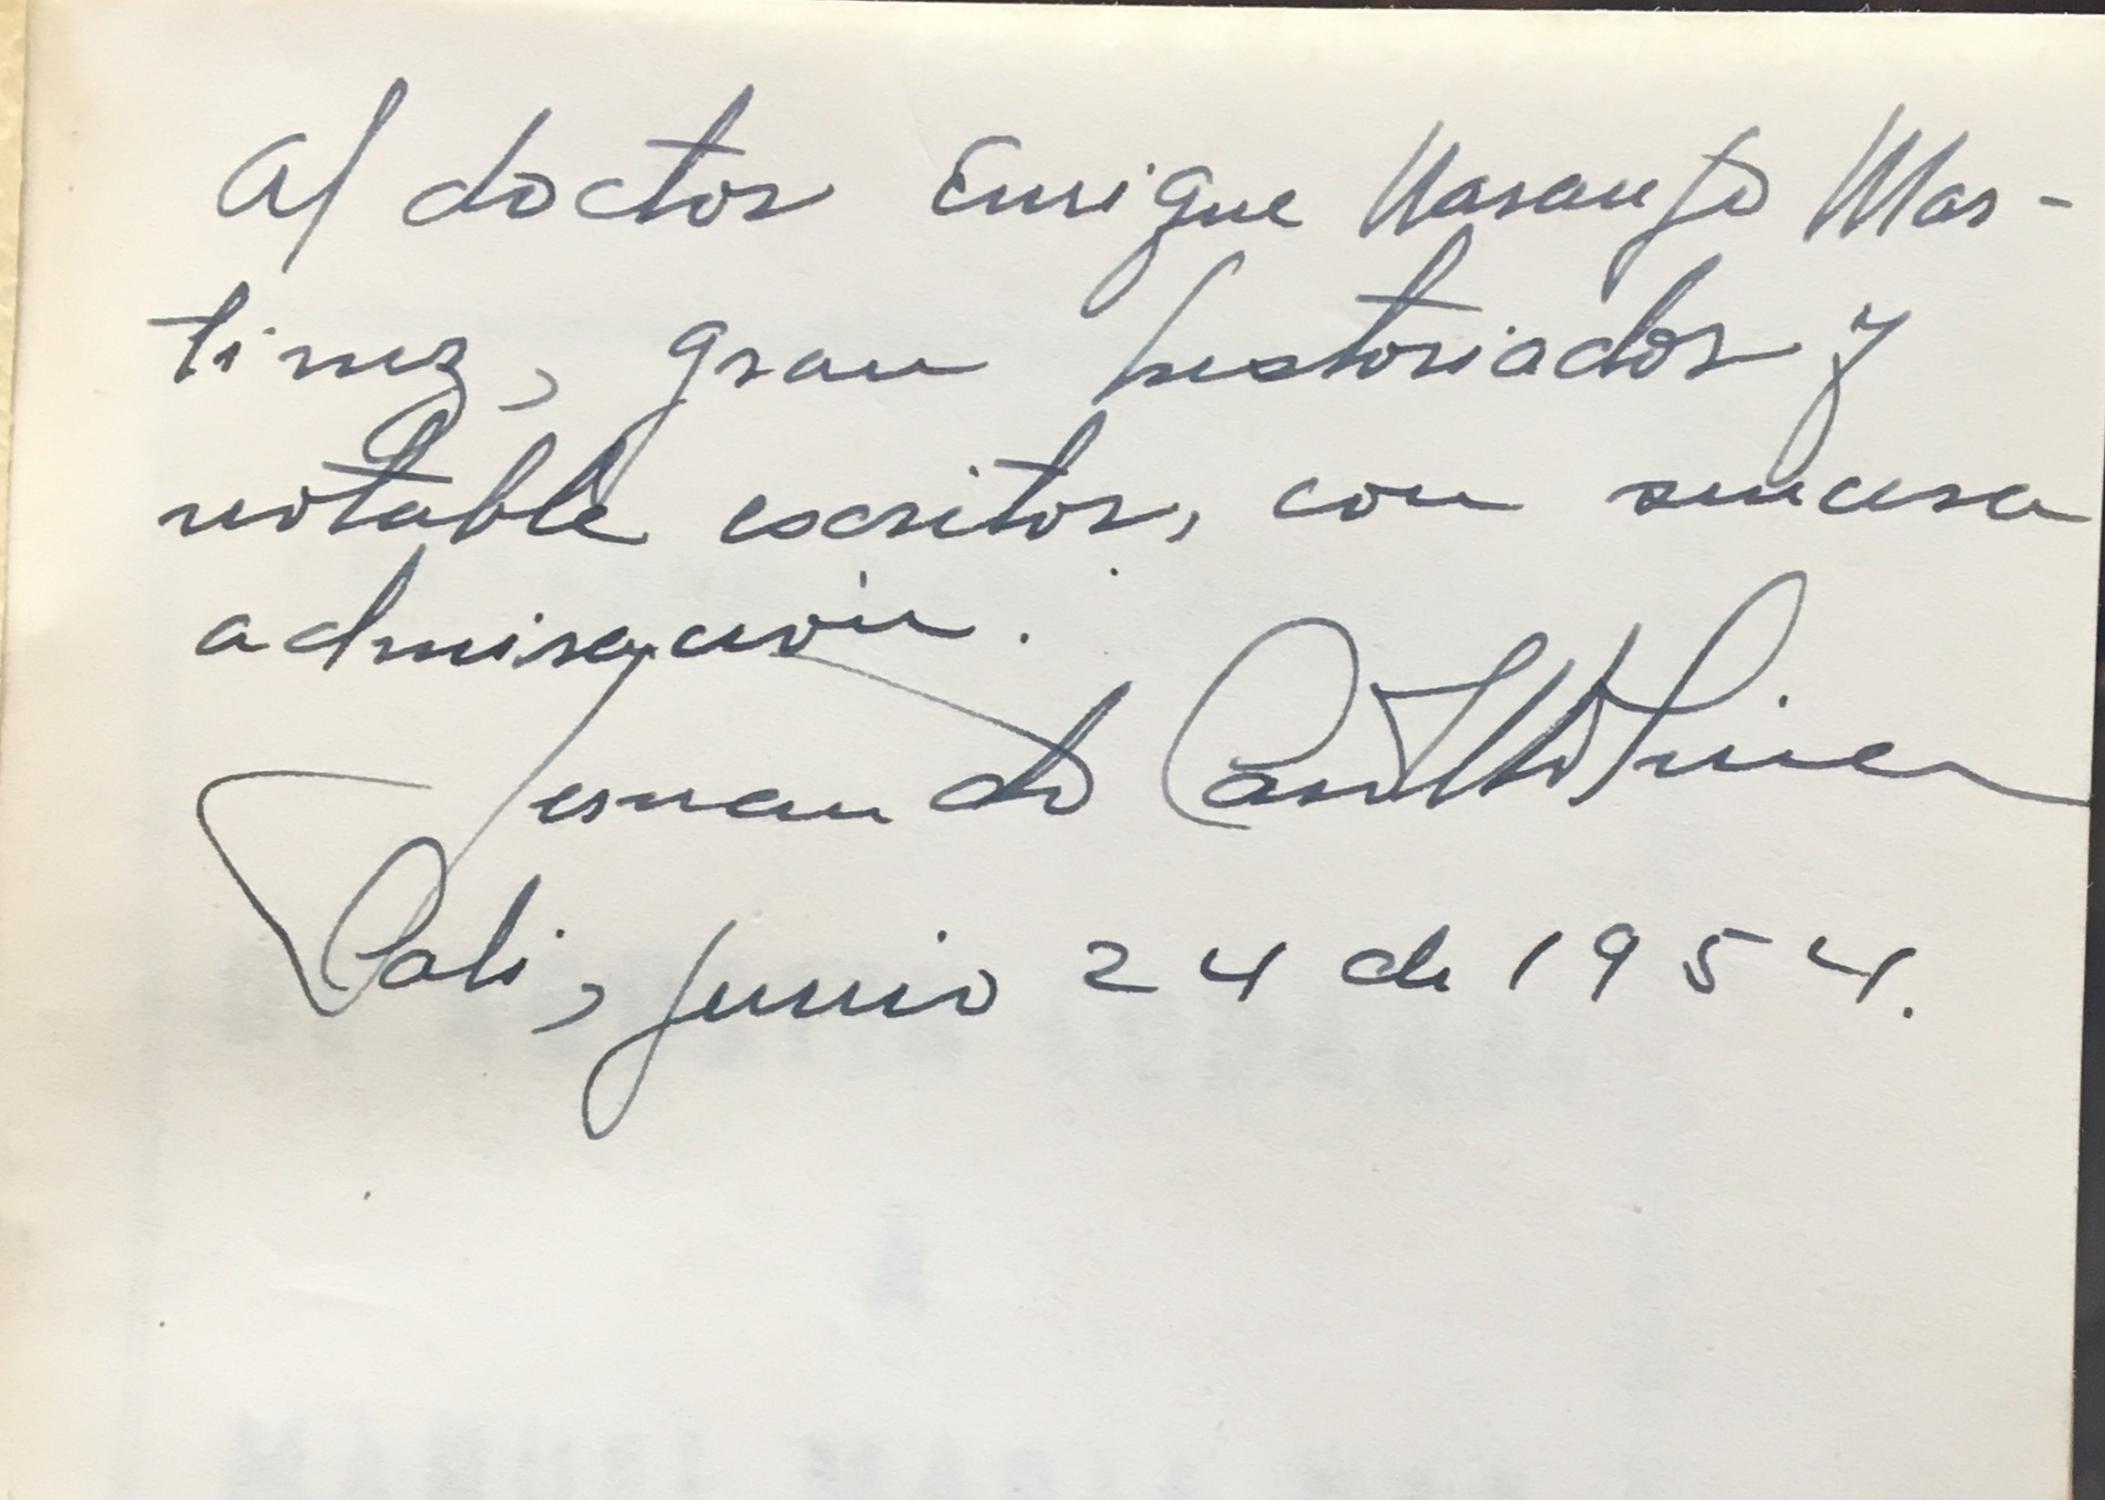 Al doctor Enrique Naranjo Mar-
tinez, gran historiador y
notable escritor, con sincera
admiración.
Fernando
Cali, junio 24 de 1954.